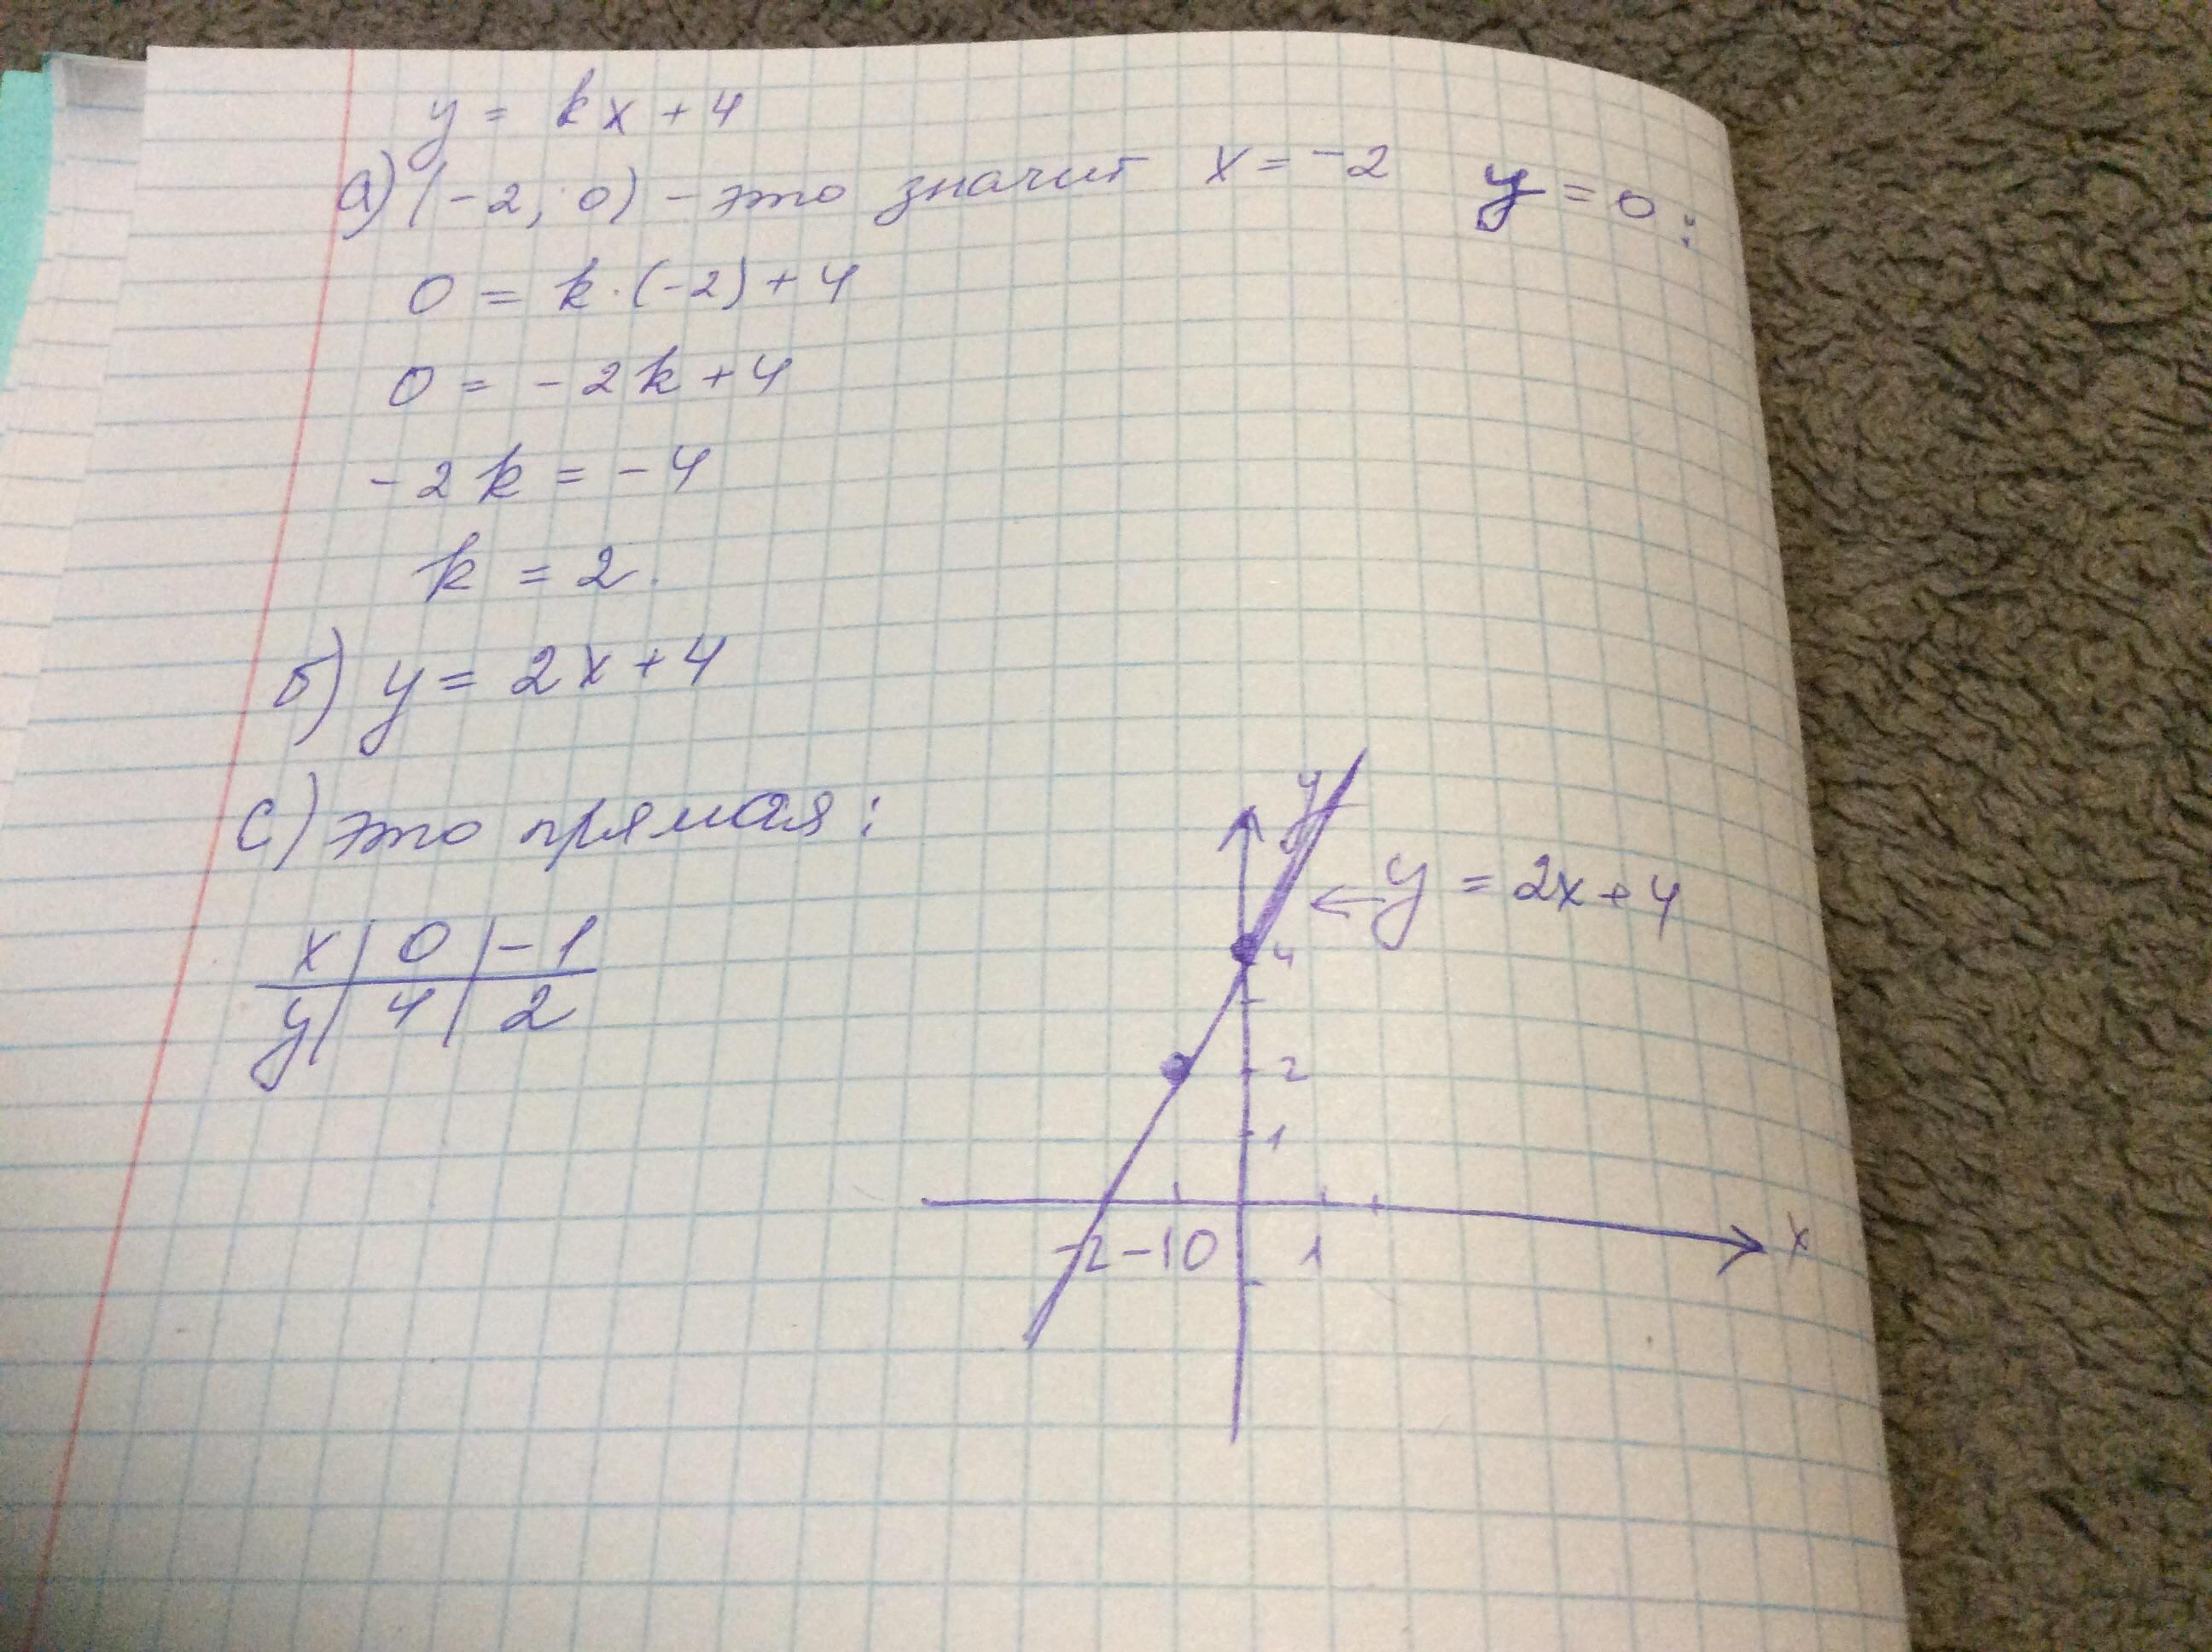 y = kx + 4
а) (-2; 0) - это значит x = -2 y = 0:
0 = k·(-2) + 4
0 = -2k + 4
-2k = -4
k = 2.
б) y = 2x + 4
с) это прямая:
x | 0 | -1
y | 4 | 2
y
← y = 2x + 4
4
2
1
-2 -1 0 1 x